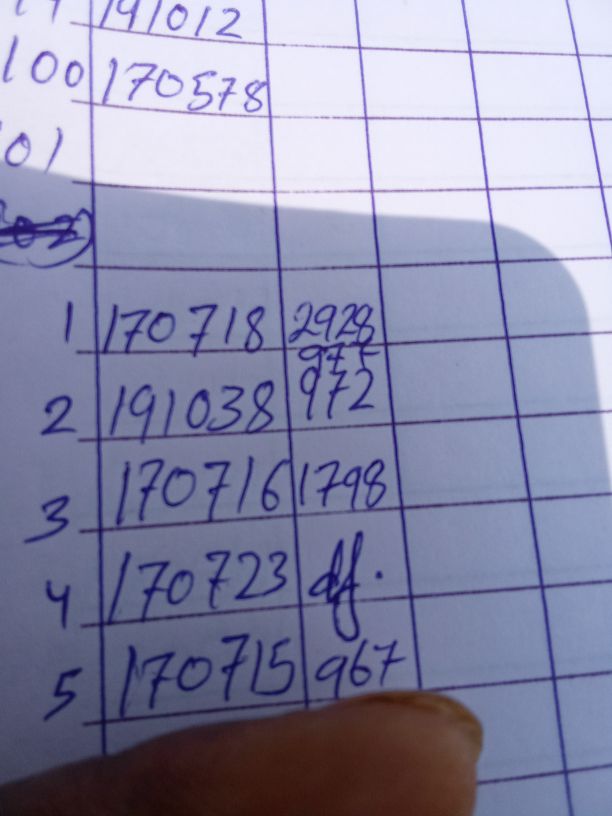 191012
100 170578
01
1 170718 2928
977
2 191038 972
3 170716 1798
4 170723 df.
5 170715 967